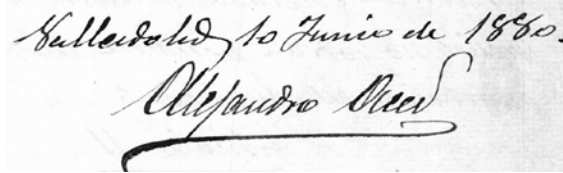 Valladolid, 10 Junio de 1880.
Alejandro